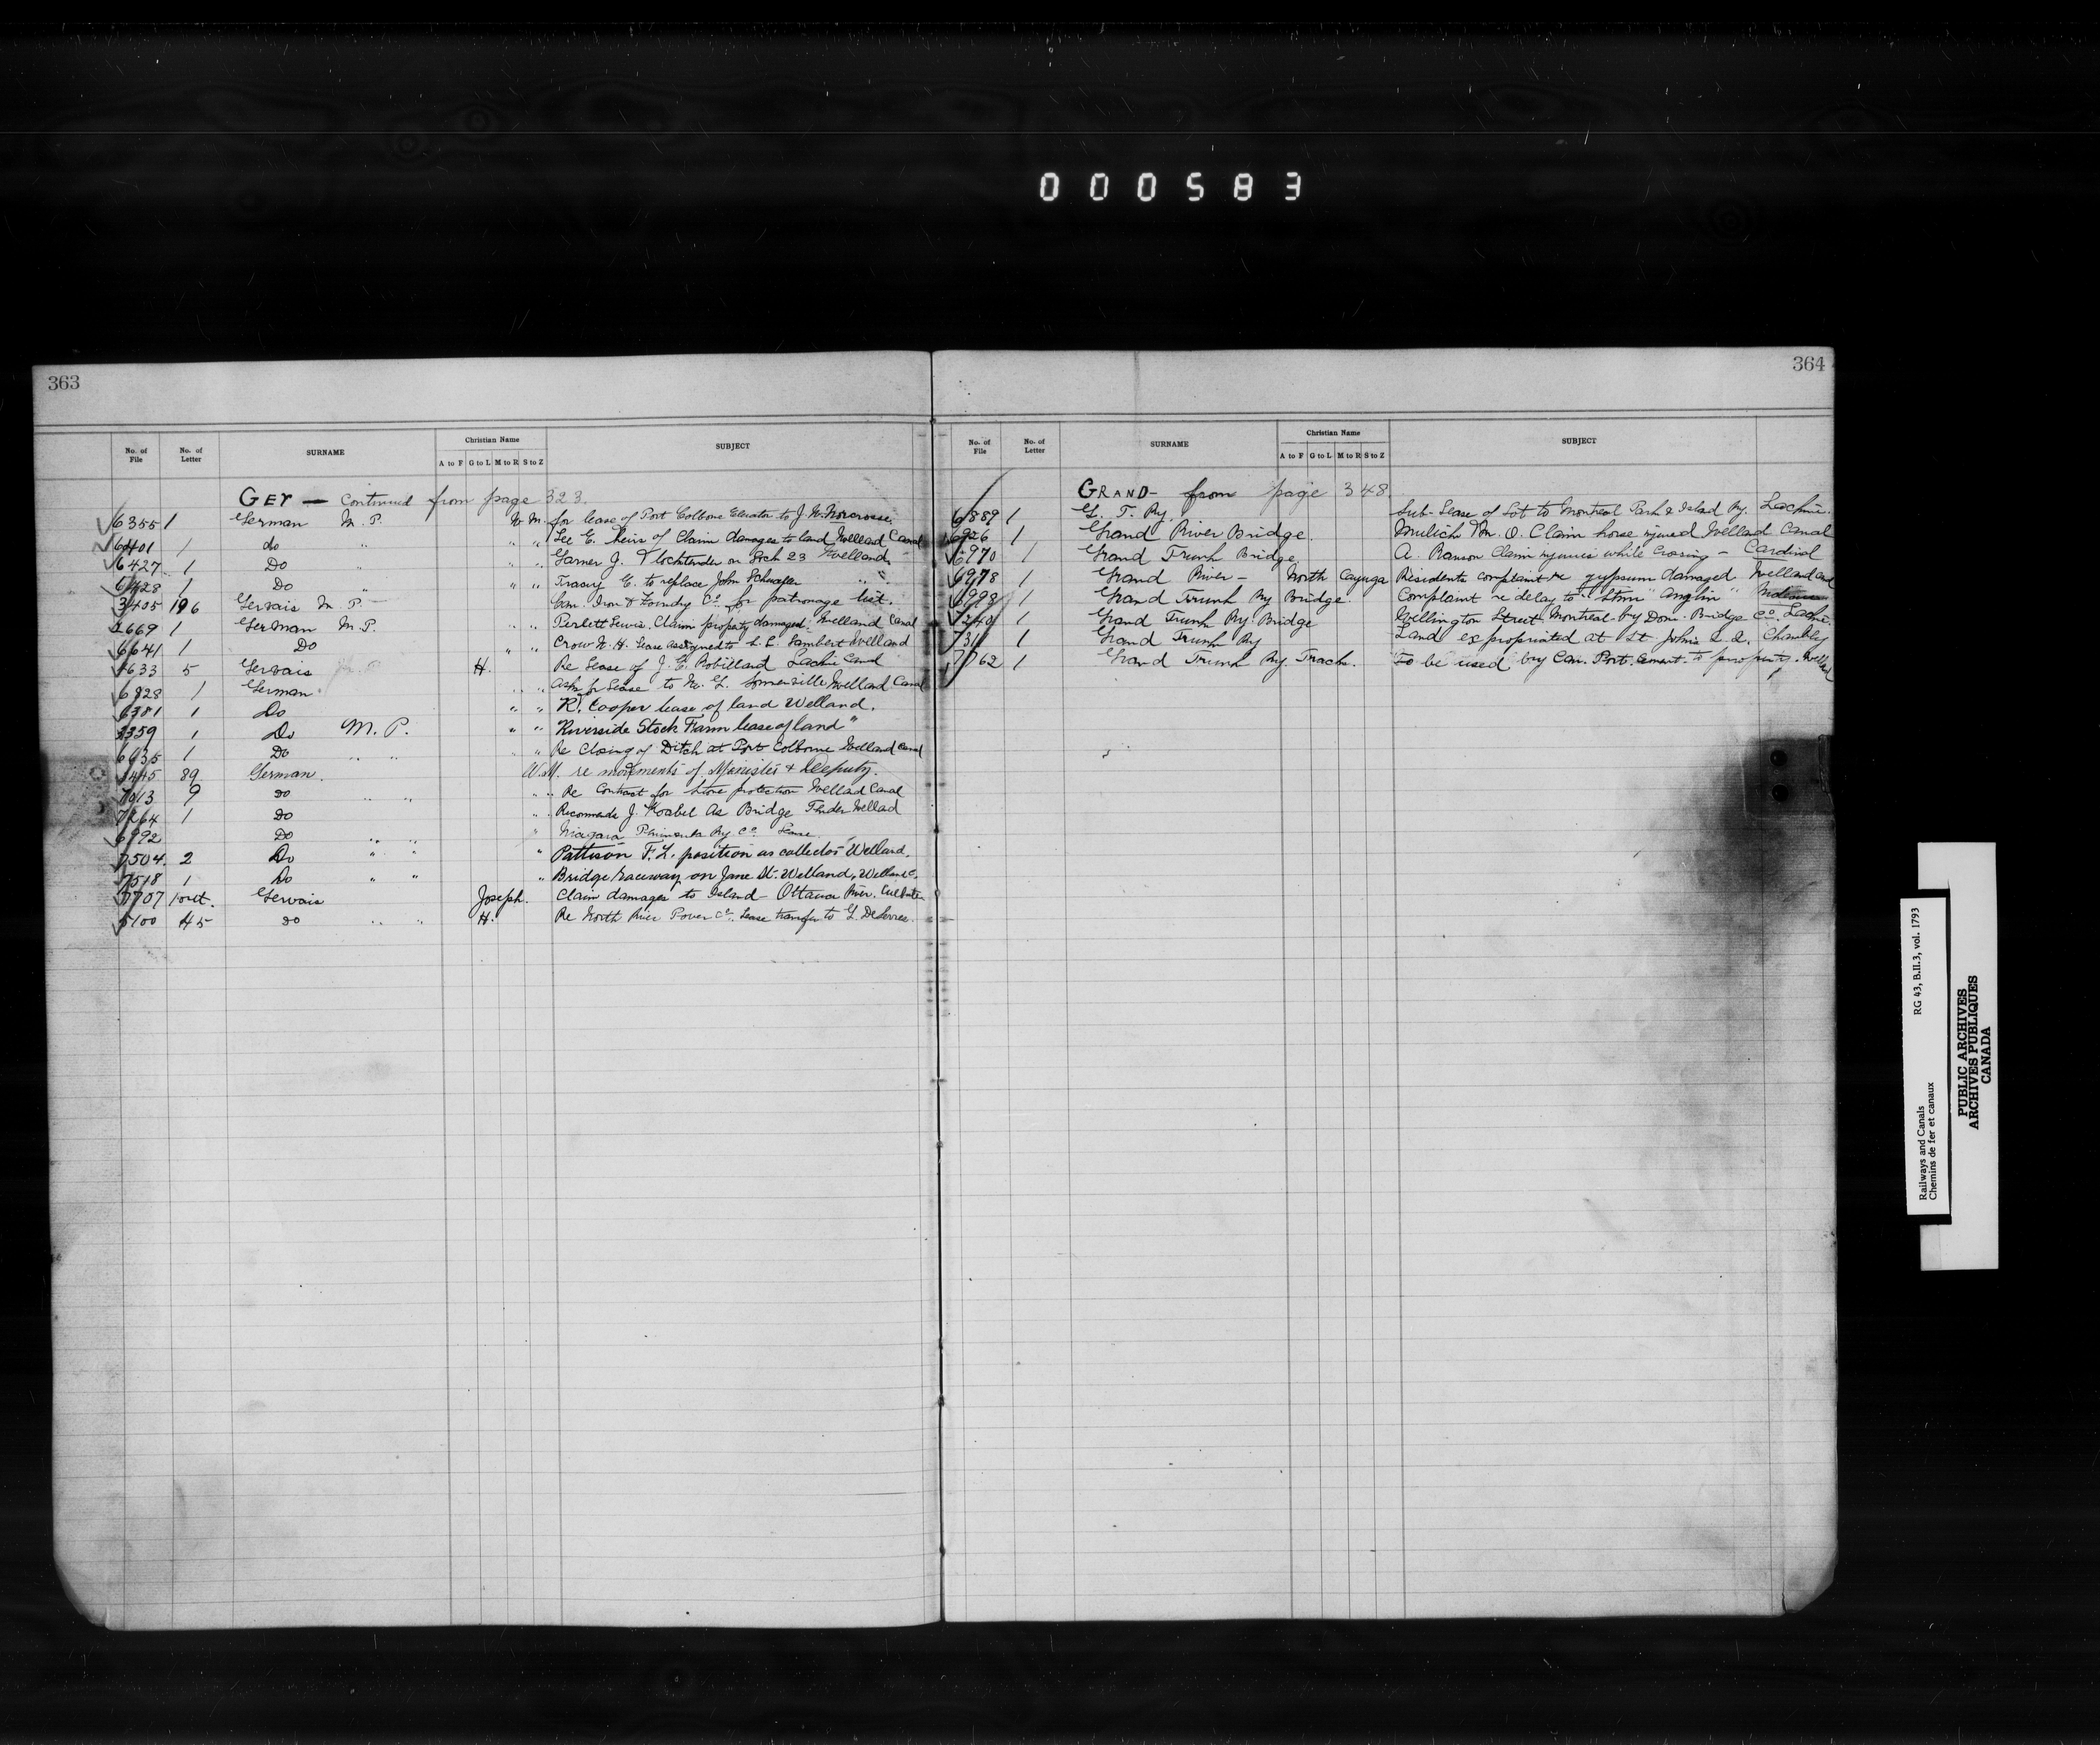 000583
363
No. of File No. of Letter SURNAME Christian Name A to F G to L M to R S to Z SUBJECT
GER — Continued from page 323.
6355 1 German M.P. W. M. for lease of Port Colborne Elevator to J. W. Norcrosse.
6401 1 do " " " Lee E. heirs of Claim damages to land Welland Canal
6427 1 Do " " " Garner J. locktender on Lock 23 Welland
6428 1 Do " " " Tracey E. to replace John " "
3405 196 Gervais M.P. Can. Iron & Foundry Co. for patronage list.
6669 1 German M.P. " " Lewis. Claim property damaged. Welland Canal
6641 1 Do " " Crow N. H. Lease assigned to L. E. Lambert Welland
1633 5 Gervais H. Re Lease of J. E. Robillard Lachine Canal
6828 1 German " " Asks for Lease to Somerville Welland Canal
6381 1 Do " " R. Cooper lease of land Welland.
1 Do M.P. " " Riverside Stock Farm lease of land "
6635 1 Do " " " Re Closing of Ditch at Port Colborne Welland Canal
89 German. W.M. re movements of Minister & Deputy.
7013 9 do " " " " Re Contract for protection Welland Canal
7264 1 do " " Recommends J. Koabel As Bridge Tender Welland
6992 Do " " " Niagara Peninsula Ry. Co. Lease
7504 2 Do " " " Pattison F. L. position as collector Welland.
7518 1 Do " " " Bridge raceway on Jane St. Welland, Welland C.
7707 1 out. Gervais Joseph. Claim damages to Island Ottawa River.
5100 45 do " " H. Re North River Power Co. Lease transfer to DeSerres.
364
No. of File No. of Letter SURNAME Christian Name A to F G to L M to R S to Z SUBJECT
GRAND - from page 348.
6889 1 G. T. Ry. Sub-Lease of Lot to Montreal Park & Island Ry. Lachine.
6926 1 Grand River Bridge. M. O. Claim horse injured Welland Canal
6970 1 Grand Trunk Bridge A. Ranson Claim injuries while Crossing - Cardinal
6978 1 Grand River - North Cayuga Residents complaint re gypsum damaged Welland Canal
6998 1 Grand Trunk Ry Bridge. Complaint re delay to Stmr "Anglin"
7240 1 Grand Trunk Ry Bridge Wellington Street Montreal by Dom. Bridge Co. Lachine.
7311 1 Grand Trunk Ry Land expropriated at St. Johns Chambly
7762 1 Grand Trunk Ry. Track. To be used by Can. Port. Cement. to property. Welland
Railways and Canals RG 43, B.II.3, vol. 1793
Chemins de fer et canaux
PUBLIC ARCHIVES
ARCHIVES PUBLIQUES
CANADA